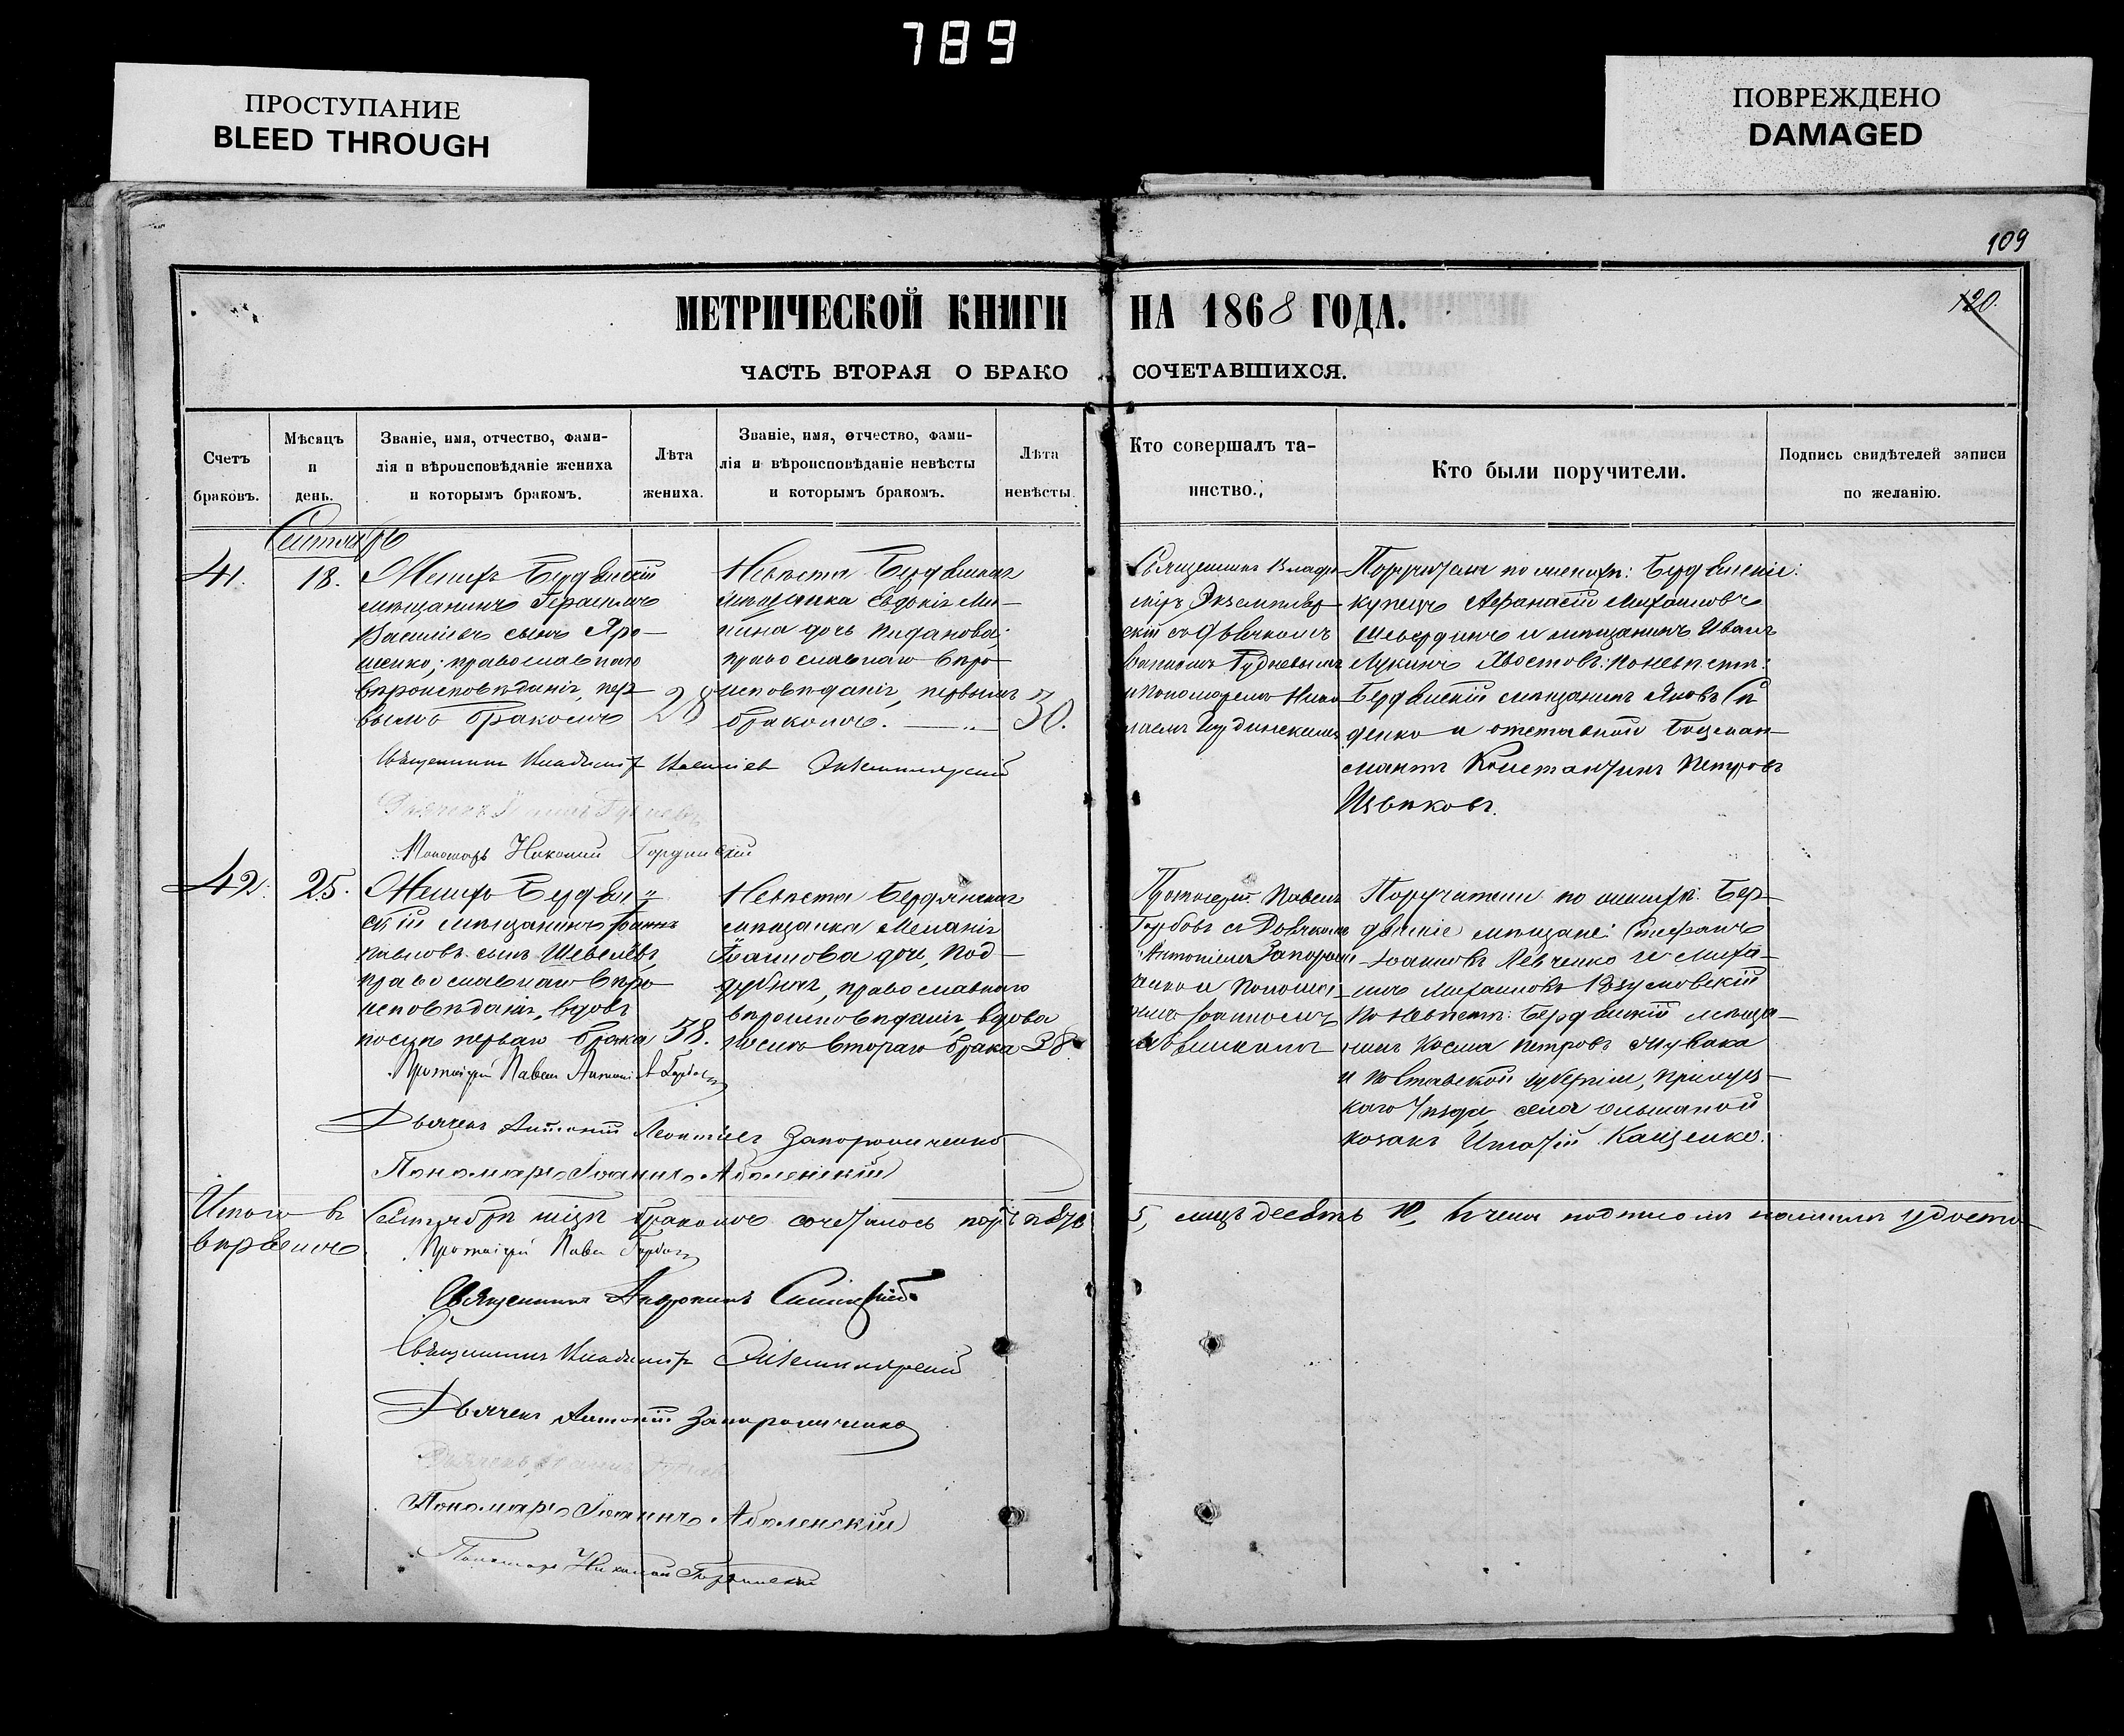 789
ПРОСТУПАНИЕ
BLEED THROUGH
ПОВРЕЖДЕНО
DAMAGED
109
120.
МЕТРИЧЕСКОЙ КНИГИ НА 1868 ГОДА.
ЧАСТЬ ВТОРАЯ О БРАКО СОЧЕТАВШИХСЯ.
Счетъ
браковъ.
Мѣсяцъ
и
день.
Званіе, имя, отчество, фами-
лія и вѣроисповѣданіе жениха
и которымъ бракомъ.
Лѣта
жениха.
Званіе, имя, отчество, фами-
лія и вѣроисповѣданіе невѣсты
и которымъ бракомъ.
Лѣта
невѣсты.
Кто совершалъ та-
инство.
Кто были поручители.
Подпись свидѣтелей записи
по желанію.
Сентябрь
41.
18.
Женихъ Бердянскій
мѣщанинъ Герасимъ
Васильевъ сынъ Яро-
шенко; православнаго
вѣроисповѣданія, пер-
вымъ бракомъ
28
Невѣста Бердянская
мѣщанка Евдокія Ми-
нина дочь
православнаго вѣро-
исповѣданія, первымъ
бракомъ.
30.
Священникъ Влади-
міръ Экземпляр-
скій съ дьячкомъ
и Пономаремъ Нико-
лаемъ
Поручители по женихѣ: Бердянскіе:
купецъ Афанасій Михаиловъ
и мѣщанинъ Иванъ
Лукинъ Хвостовъ: по невѣстѣ:
Бердянскій мѣщанинъ Яковъ
денко и отставной Боцман-
матъ Константинъ Петровъ
Священникъ Владимір Экземплярскій
Пономарь Николай
42.
25.
Женихъ Бердян-
скій мѣщанинъ
Павловъ сынъ Шевелёвъ,
православнаго вѣро-
исповѣданія, вдовъ
послѣ перваго брака
38.
Невѣста Бердянская
мѣщанка Меланія
Іоаннова дочь, Под-
дубная, православнаго
вѣроисповѣданія, вдова
послѣ втораго брака
38.
Протоіерей Павелъ
Гарбовъ съ Дьячкомъ
Антоніемъ Запорож-
ченко и Понома-
ремъ Іоанномъ
Аболенскимъ
Поручители по женихѣ: Бер-
дянскіе мѣщане: Стефанъ
Іоанновъ Левченко и Миха-
илъ Михаиловъ Розумовскій
по невѣстѣ: Бердянскій мѣща-
нинъ Косма Петровъ
и Полтавской губерніи, Прилуц-
каго Уѣзда, села Ольшаной
козакъ Игнатій Кащенко.
Протоіерей Павелъ
Дьячекъ Антоній Леонтіев Запорожченко
Пономарь Іоаннъ Аболенскій
Итого въ Сентябрѣ мѣсяцѣ бракомъ сочеталось паръ пять 5, лицъ десять 10, въ чемъ подписомъ нашимъ удосто-
вѣряемъ
Протоіерей Павел
Священникъ
Священникъ Владиміръ Экземплярскій
Дьячекъ Антоній Запорожченко
Пономарь Іоаннъ Аболенскій
Пономарь Николай